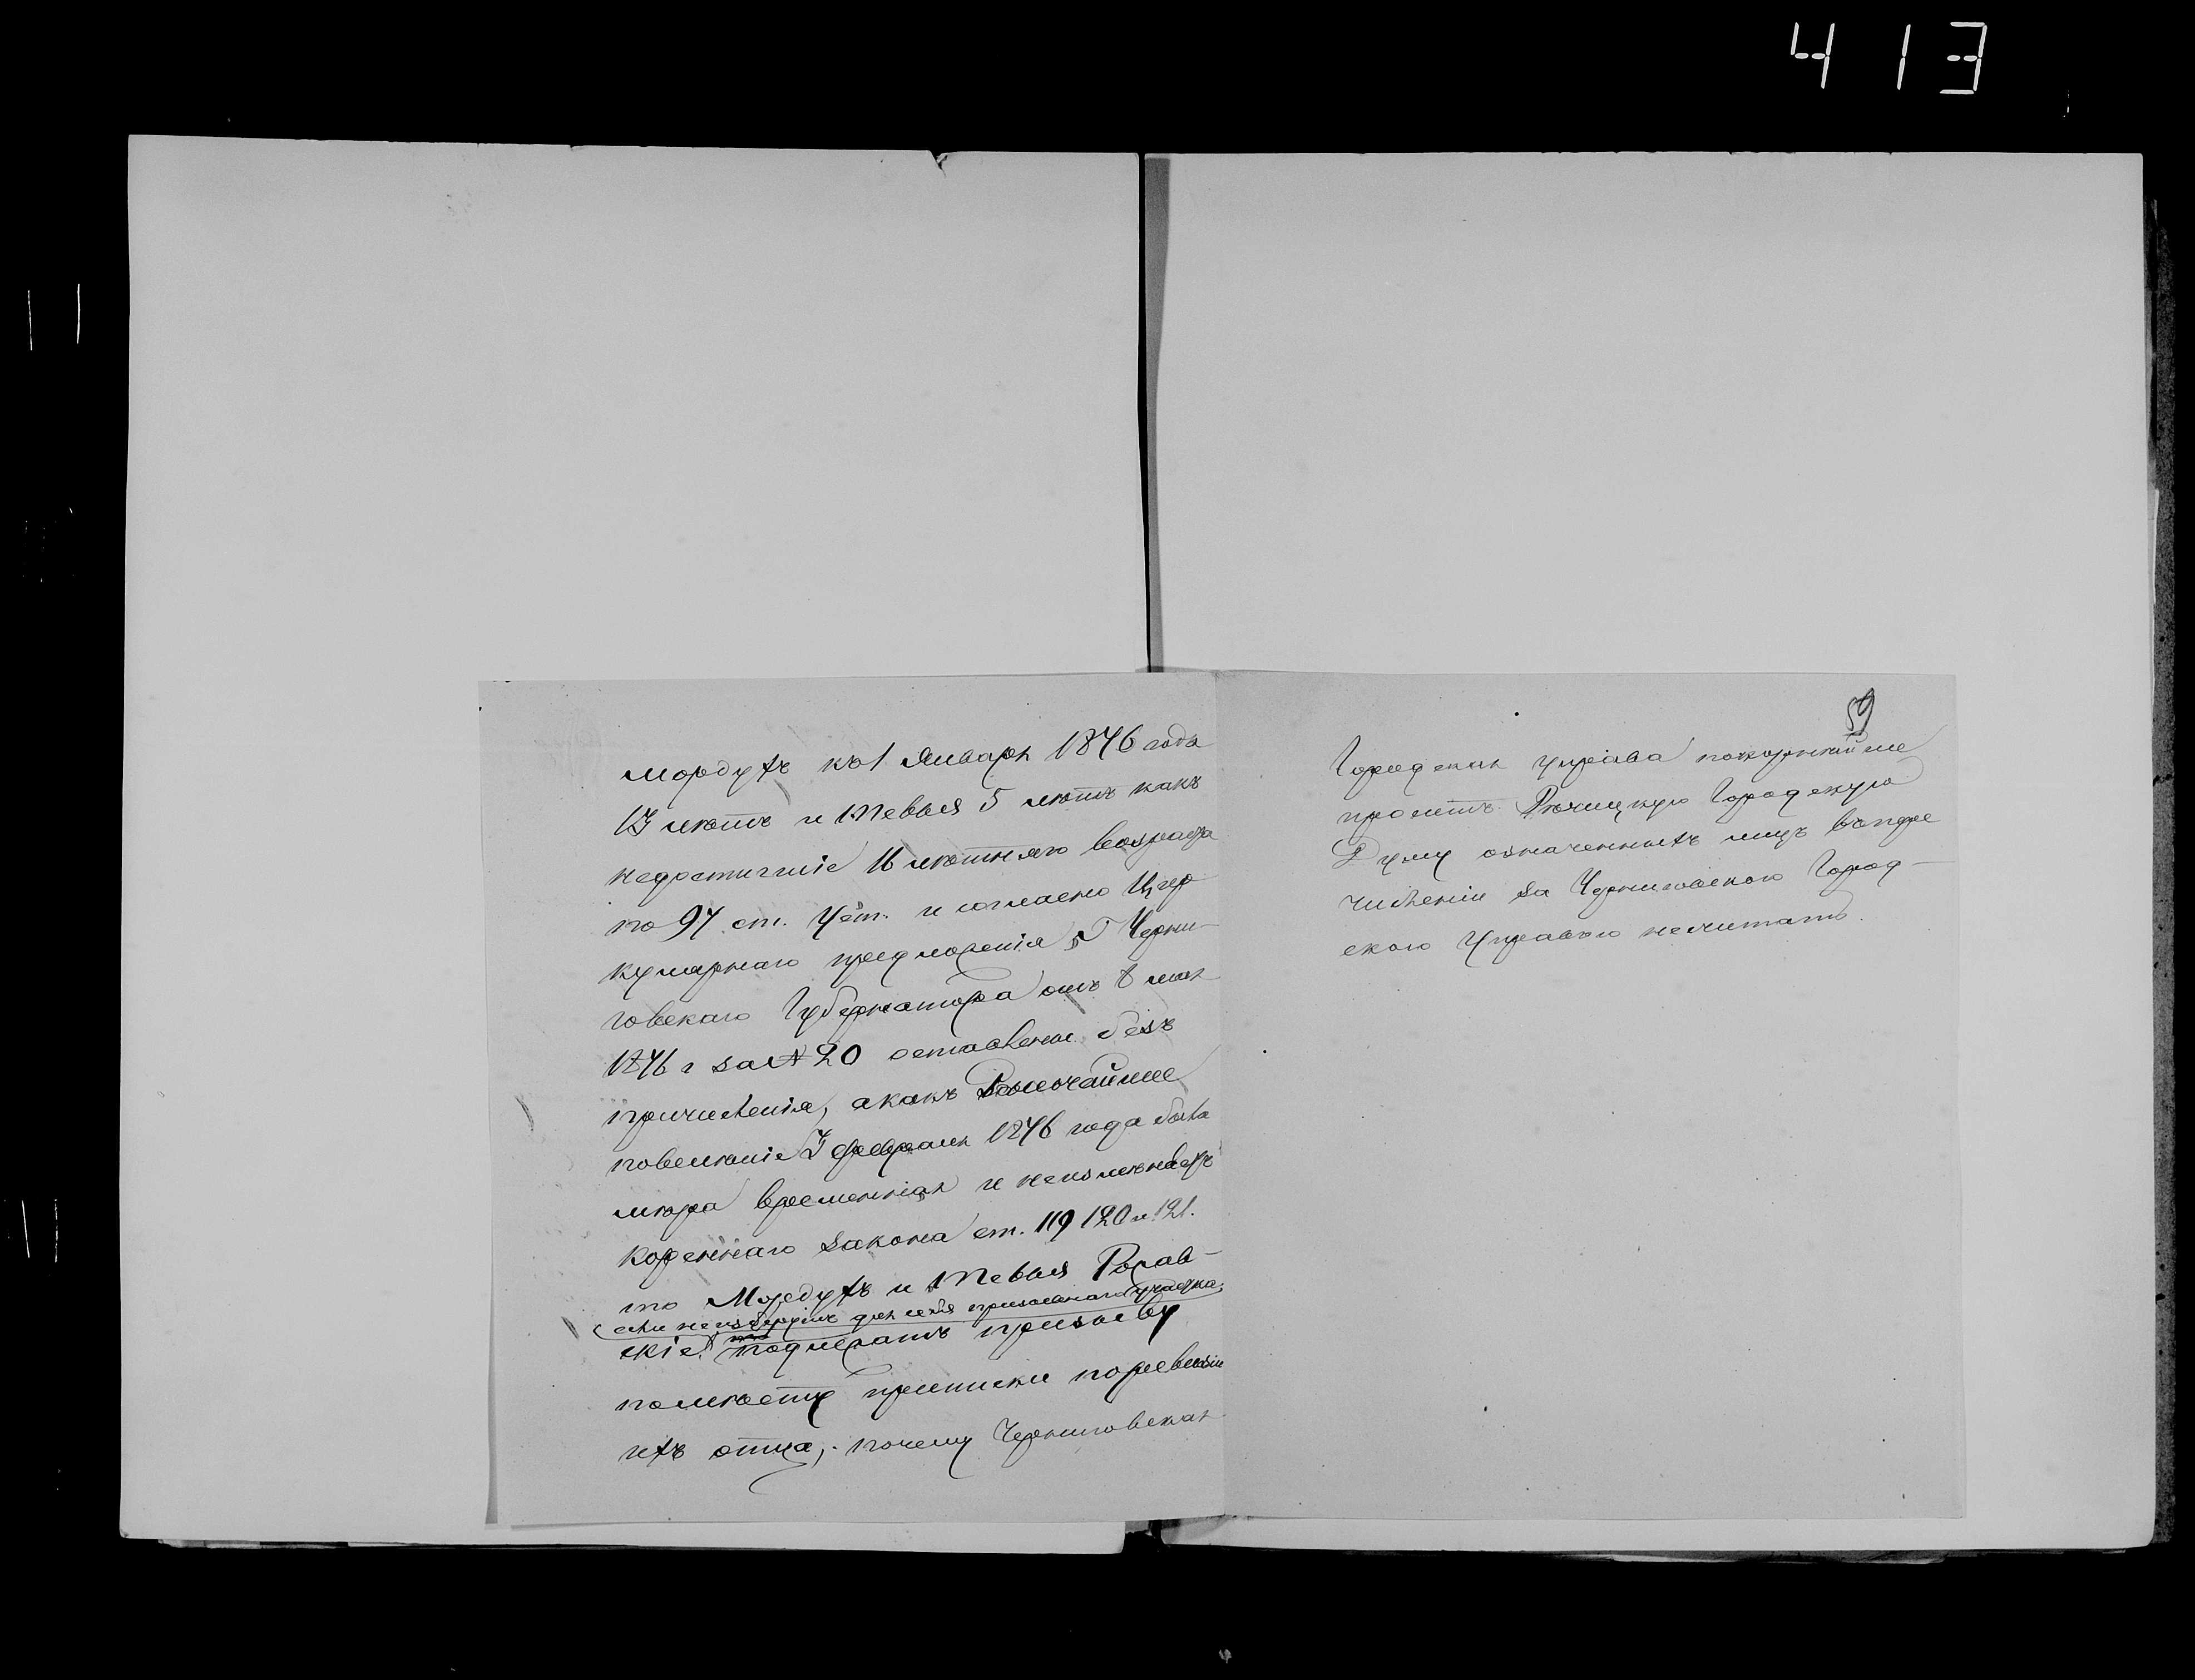 4 1 3
Мордухъ къ 1 Января 1876 года
13 лѣтъ и Тевья 5 лѣтъ какъ
недостигшіе 16 лѣтняго возраста
по 97 ст. Уст. и согласно Цир
кулярнаго предложенія Г Черни-
говскаго Губернатора отъ 8 мая
1876 г за № 20 оставлены безъ
причисленія, а какъ Высочайшее
повелѣніе 3 февраля 1876 года была
мѣра временная и неизмѣняетъ
кореннаго закона ст. 119 120 и 121.
то Мордухъ и Тевья Рогав-
если неизберутъ для себя призывнаго участка,
скіе подлежатъ призыву
помѣсту приписки поревизіи
ихъ отца, почему Черниговская
59
Городская управа покорнѣйше
проситъ Рѣчицкую Городскую
Думу означенныхъ лицъ въпри
численіи за Черниговскою Город-
скою Управою несчитать.